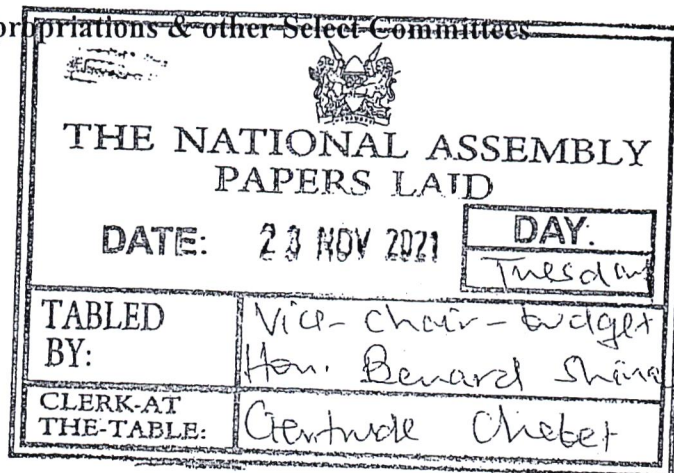 & other Select Committees
THE NATIONAL ASSEMBLY
PAPERS LAID
DATE: 23 NOV 2021
DAY:
Tuesday
TABLED BY:
Vice-Chair-budget
Hon. Benard
CLERK-AT THE-TABLE:
Gertrude Chebet